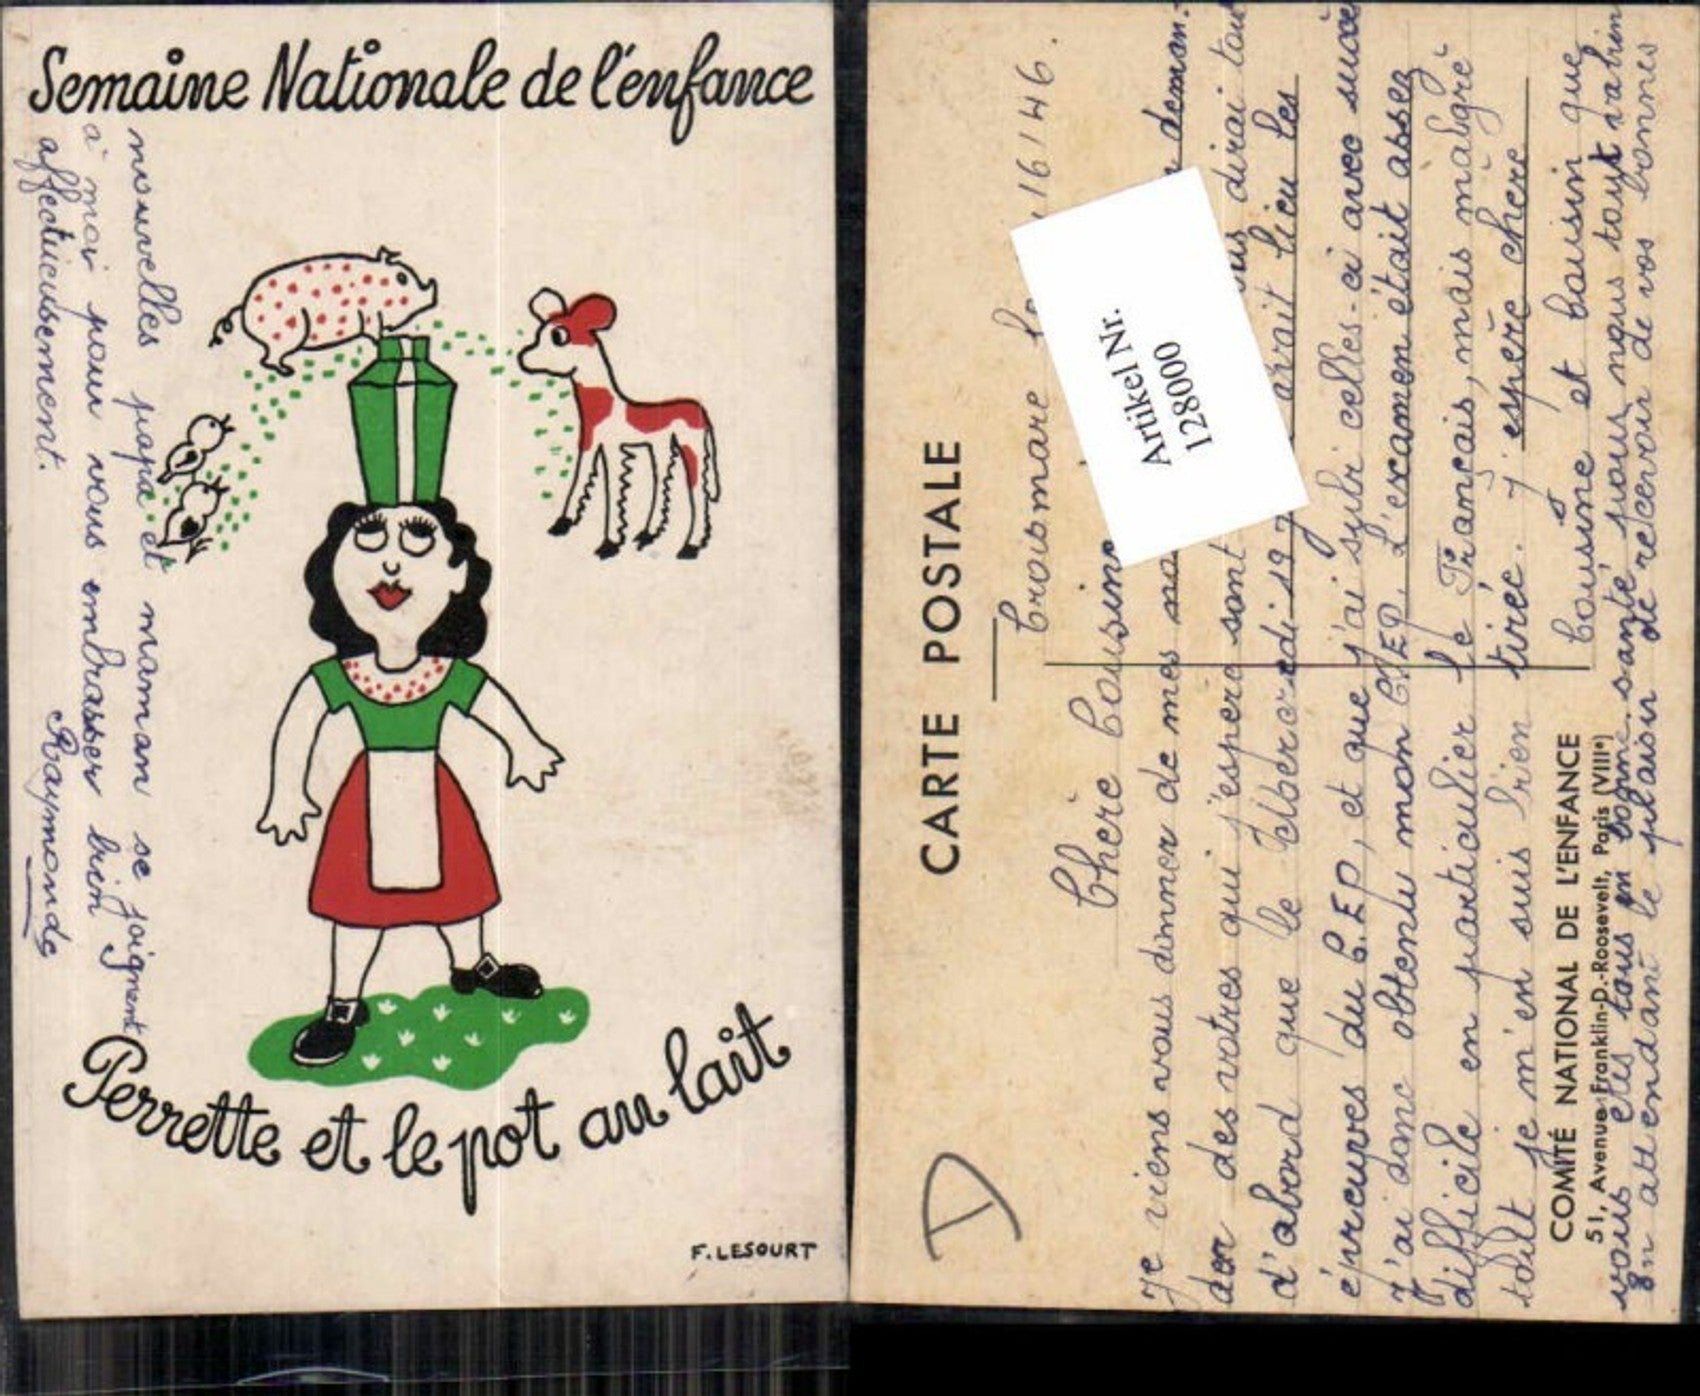 Semaine Nationale de l'enfance
nouvelles papa et maman se joignent
à moi pour vous embrasser bien
affectueusement.
Raymonde
Perrette et le pot au lait
F. LESOURT
CARTE POSTALE
Croismare le 16/46.
Chère Cousine
Artikel Nr.
128000
Je viens vous donner de mes deman-
der des votres qui j'espere sont vous dirai tout
d'abord que le 19 avait lieu les
épreuves du C.E.P, et que j'ai subi celles-ci avec succès
J'ai donc obtenu mon C.E.P. L'examen était assez
difficile en particulier le Français, mais malgré
tout je m'en suis bien tirée. J'espère chere
Cousine et cousin que
COMITÉ NATIONAL DE L'ENFANCE
51, Avenue Franklin-D.-Roosevelt, Paris (VIIIe)
vous etes tous en bonne santé, pour nous tout va bien
En attendant le plaisir de recevoir de vos bonnes
D